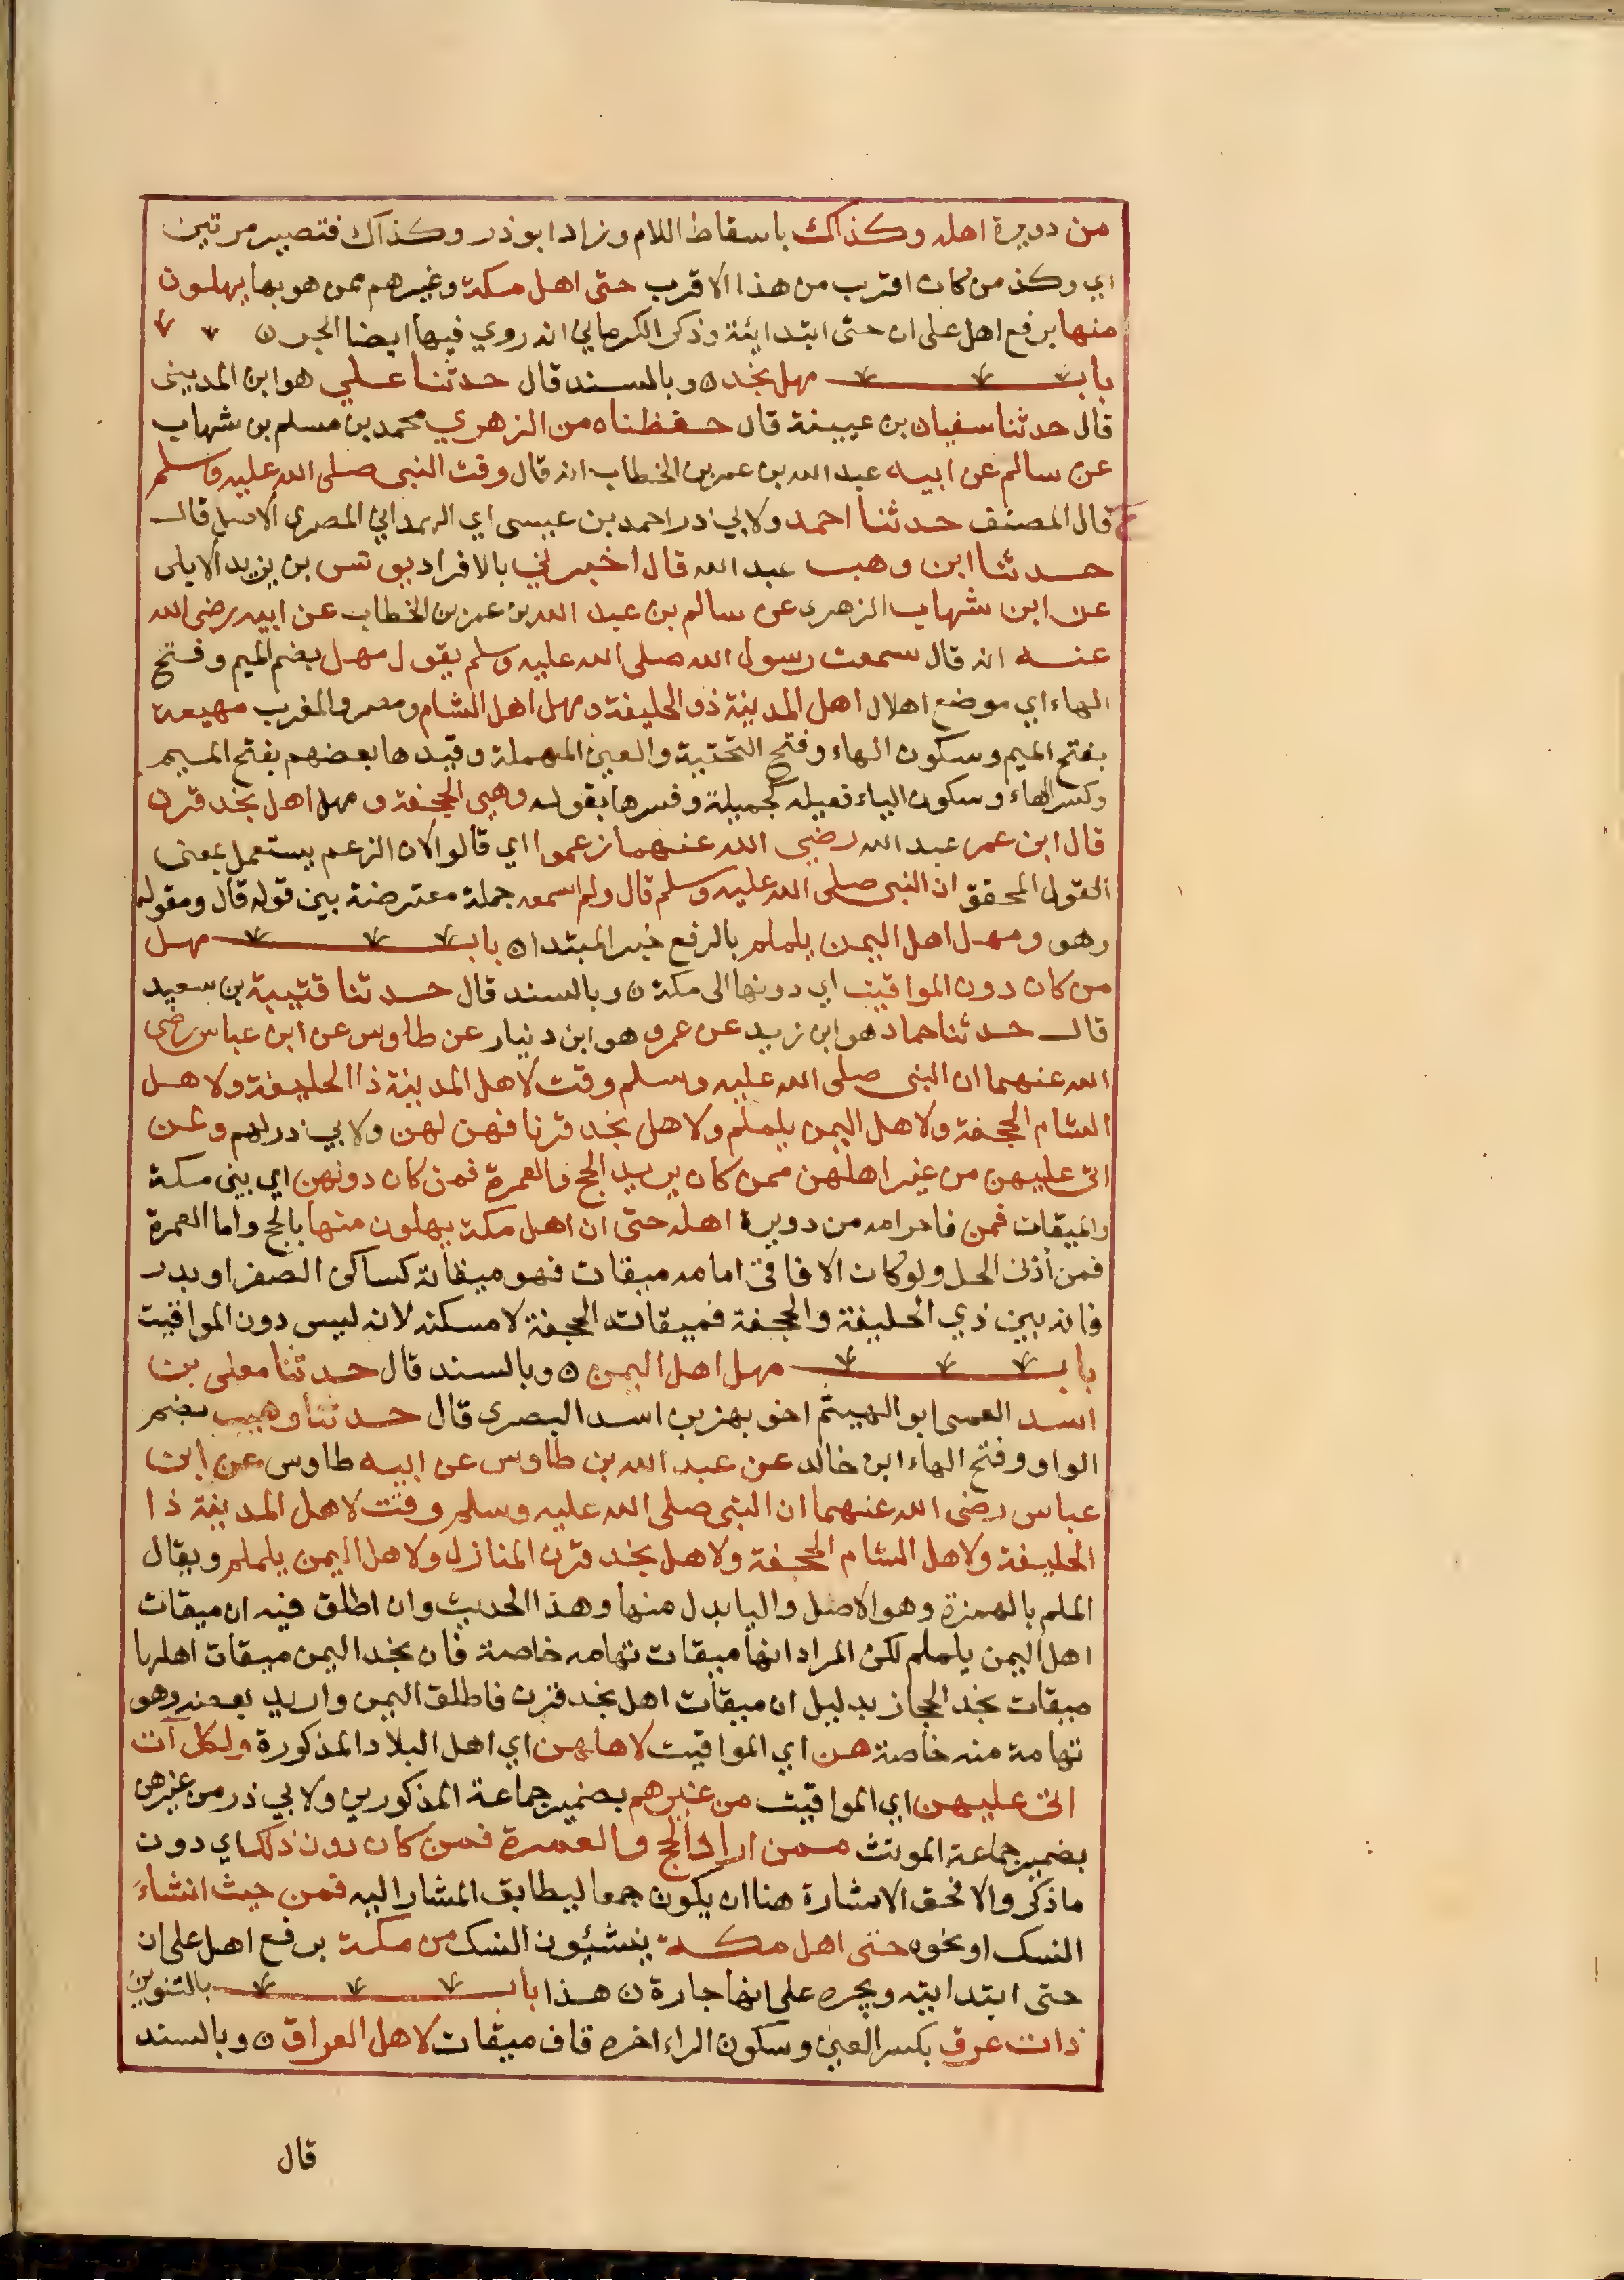 من دويرة اهله وكذاك باسقاط اللام وزاد ابو ذر وكذاك فتصير مرتين
اي وكذ من كان اقرب من هذا الاقرب حتى اهل مكة وغيرهم ممن هو بها يهلون
منها برفع اهل على ان حتى ابتدائية وذكر الكرماني انه روي فيها ايضا الجر ن
باب مهل نجد ن وبالسند قال حدثنا علي هو ابن المديني
قال حدثنا سفيان بن عيينة قال حفظناه من الزهري محمد بن مسلم بن شهاب
عن سالم عن ابيه عبد الله بن عمر بن الخطاب انه قال وقت النبي صلى الله عليه وسلم
قال المصنف حدثنا احمد ولابي ذر احمد بن عيسى اي الهمداني المصري الاصل قال
حدثنا ابن وهب عبد الله قال اخبرني بالافراد يونس بن يزيد الايلي
عن ابن شهاب الزهري عن سالم بن عبد الله بن عمر بن الخطاب عن ابيه رضي الله
عنه انه قال سمعت رسول الله صلى الله عليه وسلم يقول مهل بضم الميم وفتح
الهاء اي موضع اهلال اهل المدينة ذو الحليفة ومهل اهل الشام ومصر والمغرب مهيعة
بفتح الميم وسكون الهاء وفتح التحتية والعين المهملة وقيدها بعضهم بفتح الميم
وكسر الهاء وسكون الياء فعيله كجميلة وفسرها بقوله وهي الجحفة ومهل اهل نجد قرن
قال ابن عمر عبد الله رضي الله عنهما زعموا اي قالوا لان الزعم يستعمل بمعنى
القول المحقق ان النبي صلى الله عليه وسلم قال ولم اسمعه جملة معترضة بين قوله قال ومقوله
وهو ومهل اهل اليمن يلملم بالرفع خبر المبتدا ن باب مهل
من كان دون المواقيت اي دونها الى مكة ن وبالسند قال حدثنا قتيبة بن سعيد
قال حدثنا حماد هو ابن زيد عن عمرو هو ابن دنيار عن طاوس عن ابن عباس رضي
الله عنهما ان النبي صلى الله عليه وسلم وقت لاهل المدينة ذا الحليفة ولاهل
الشام الجحفة ولاهل اليمن يلملم ولاهل نجد قرنا فهن لهن ولابي ذر لهم وعن
اتى عليهن من غير اهلهن ممن كان يريد الحج والعمرة فمن كان دونهن اي بيني مكة
والميقات فمن فاحرامه من دويرة اهله حتى ان اهل مكة يهلون منها بالحج واما العمرة
فمن أدنى الحل ولو كان الافاقي امامه ميقات فهو ميقاته كساكن الصفرا وبدر
فانه بين ذي الحليفة والجحفة فميقاته الجحفة لا مسكنه لانه ليس دون المواقيت
باب مهل اهل اليمن ن وبالسند قال حدثنا معلى بن
اسد العمى ابو الهيثم اخو بهز بن اسد البصري قال حدثنا وهيب بضم
الواو وفتح الهاء ابن خالد عن عبد الله بن طاوس عن ابيه طاوس عن ابن
عباس رضي الله عنهما ان النبي صلى الله عليه وسلم وقت لاهل المدينة ذا
الحليفة ولاهل الشام الجحفة ولاهل نجد قرن المنازل ولاهل اليمن يلملم ويقال
الملم بالهمزة وهو الاصل واليا بدل منها وهذا الحديث وان اطلق فيه ان ميقات
اهل اليمن يلملم لكن المراد انها ميقات تهامه خاصة فان نجد اليمن ميقات اهلها
ميقات نجد الحجاز بدليل ان ميقات اهل نجد قرن فاطلق اليمن واريد بعضه وهو
تهامة منه خاصة هن اي المواقيت لاهلهن اي اهل البلاد المذكورة ولكل آت
اتى عليهن اي المواقيت من غيرهم بضمير جماعة المذكورين ولابي ذر من غيرهن
بضمير جماعة المونث ممن اراد الحج والعمرة فمن كان دون ذلك اي دون
ما ذكر والا فحق الاشارة هنا ان يكون جمعا ليطابق المشار اليه فمن حيث انشاء
النسك او نحوه حتى اهل مكة ينشيون النسك من مكة برفع اهل على ان
حتى ابتدا بيه ويجره على انها جارة ن هذا باب بالتنوين
ذات عرق بكسر العين وسكون الراء اخره قاف ميقات لاهل العراق ن وبالسند
قال